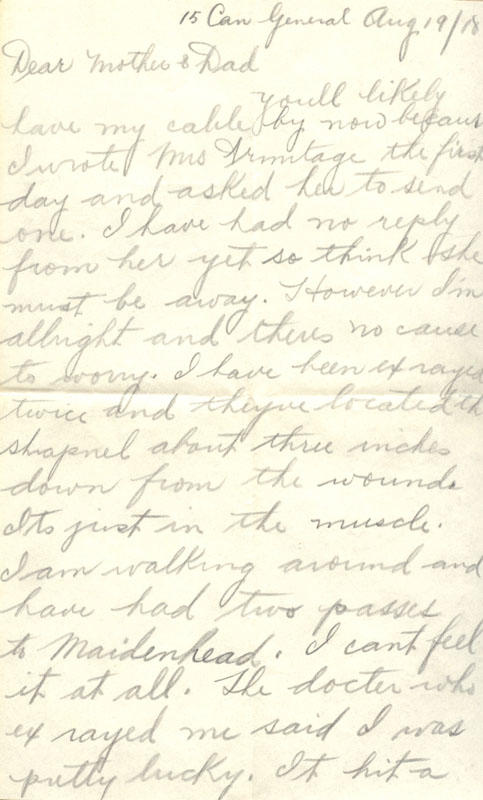 15 Can General Aug 19/18
Dear Mother & Dad
You'll likely
have my cable by now because
I wrote Mrs Armitage the first
day and asked her to send
one. I have had no reply
from her yet so think she
must be away. However I'm
allright and theres no cause
to worry. I have been ex rayed
twice and theyve located th
shapnel about three inches
down from the wound.
Its just in the muscle.
I am walking around and
have had two passes
to Maidenhead. I cant feel
it at all. The docter who
ex rayed me said I was
pretty lucky. It hit a